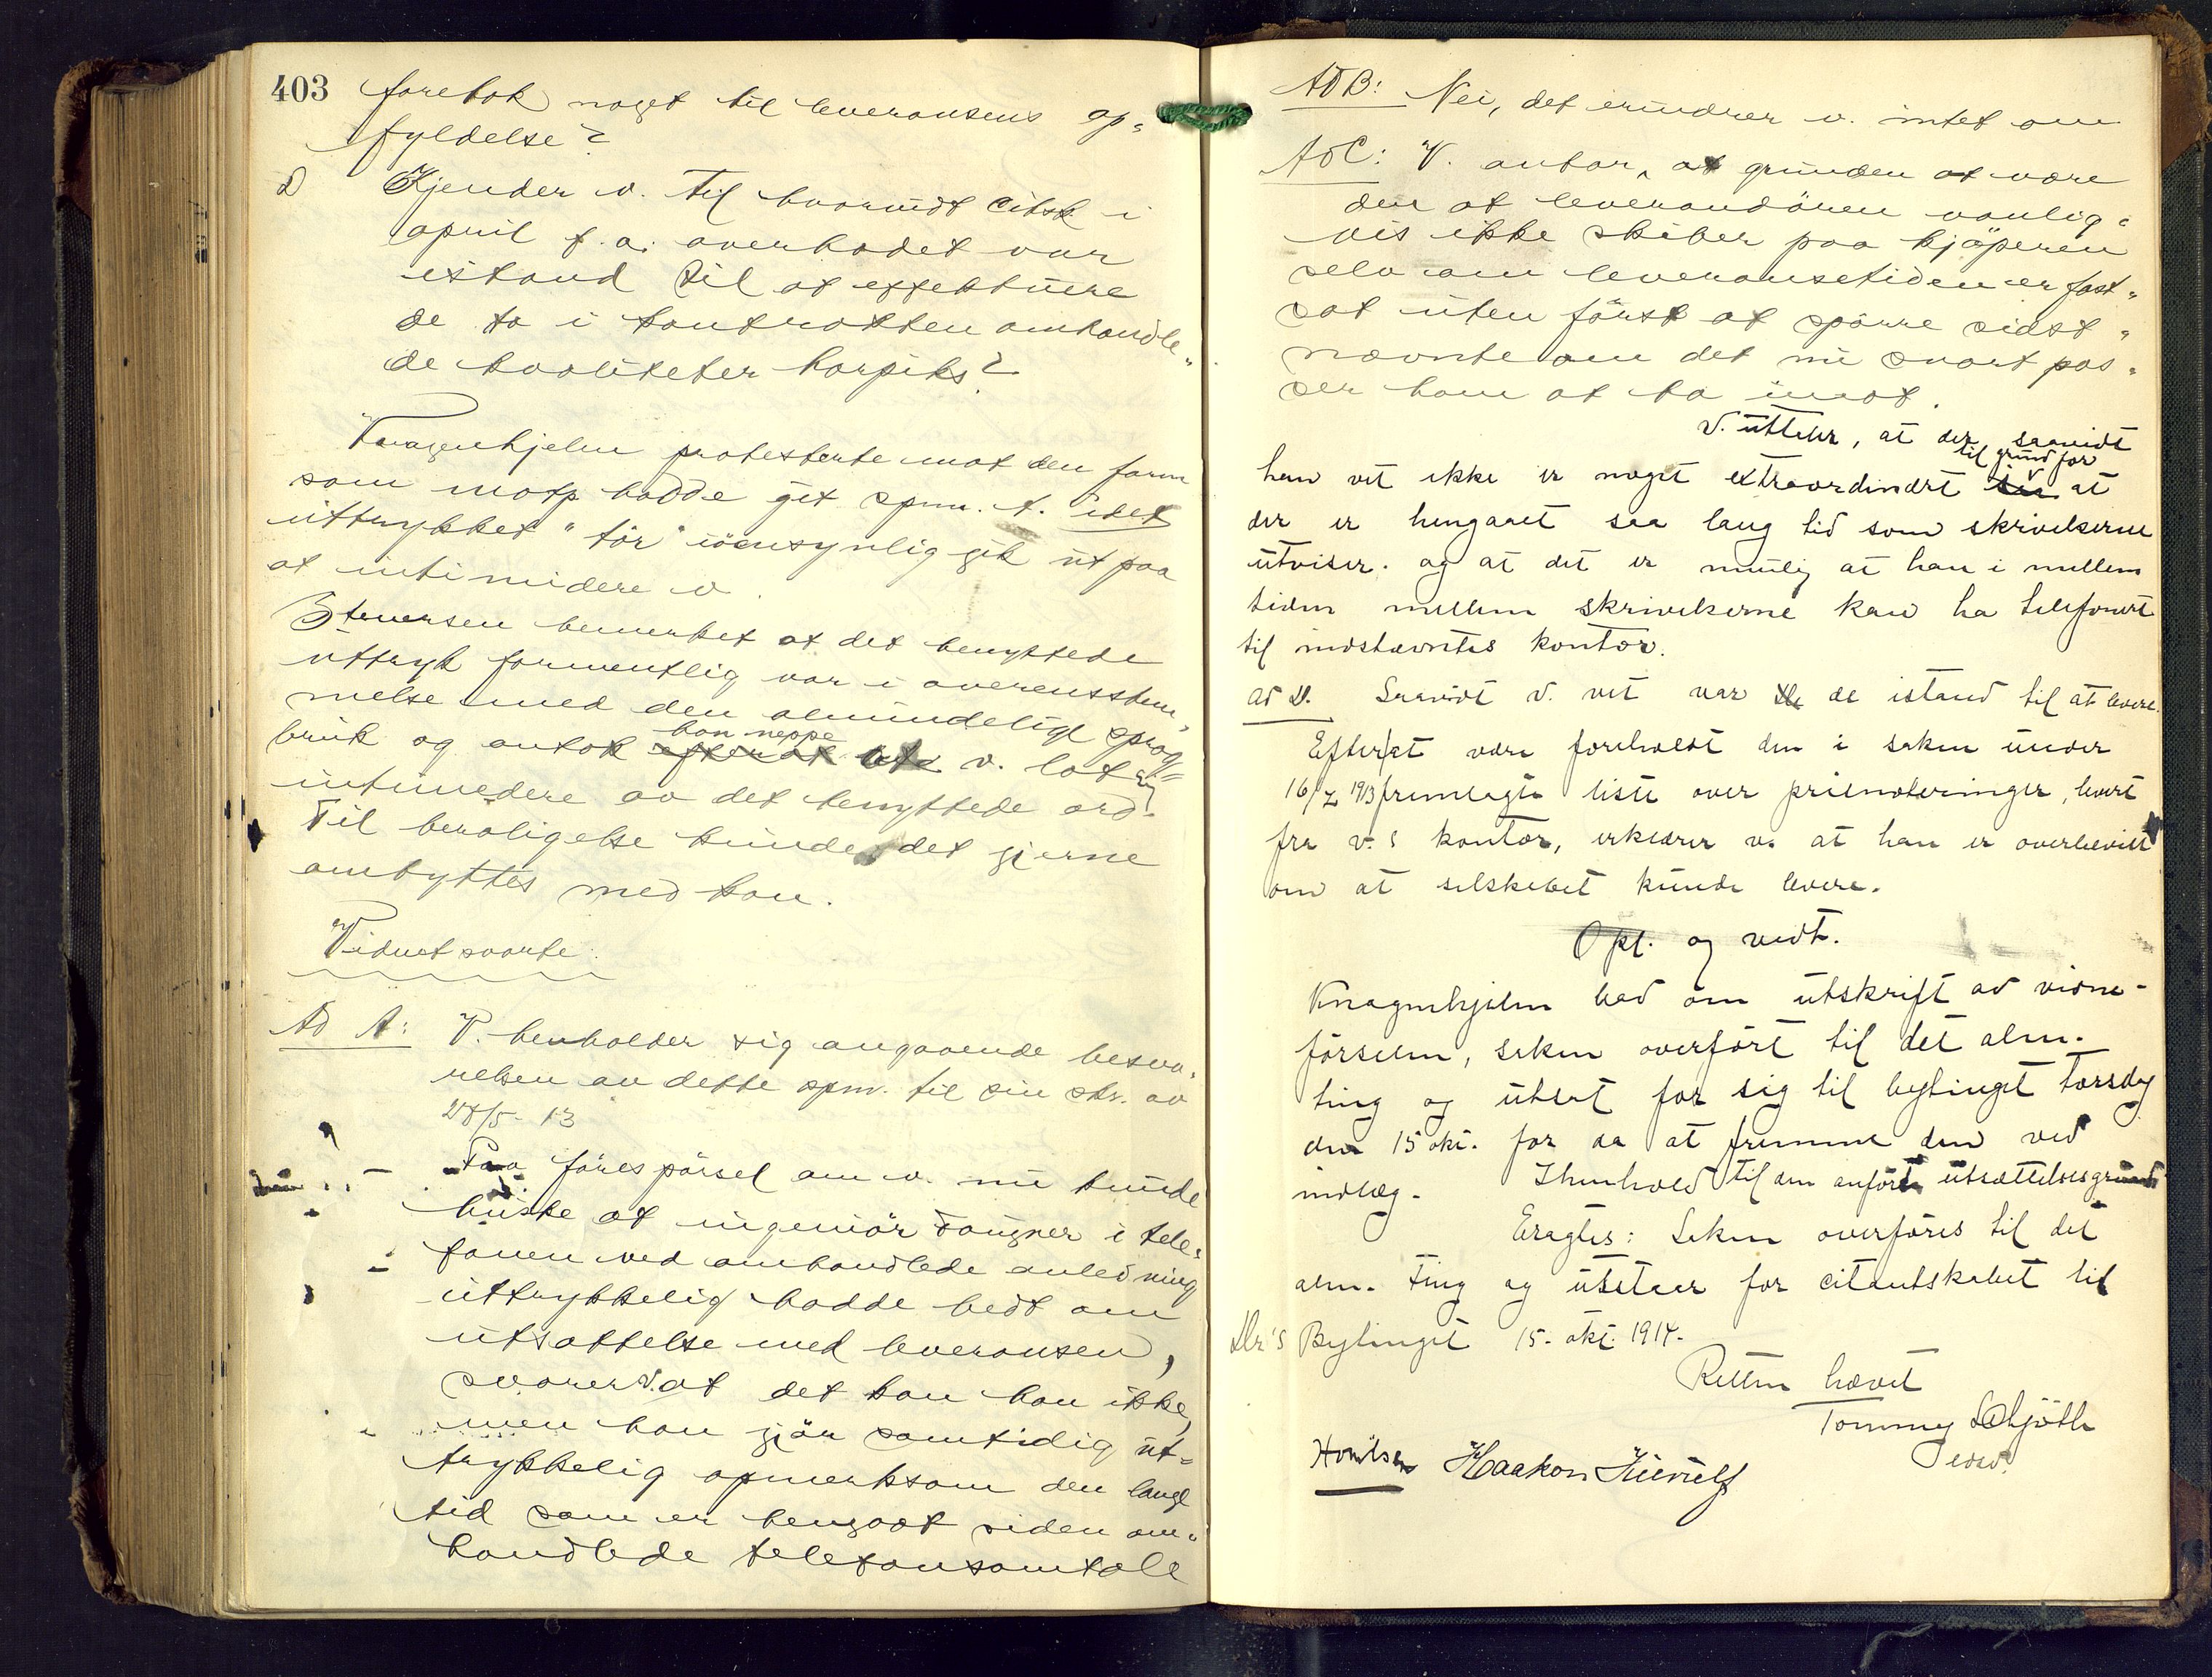 403
foretok noget til leveransens op-
fyldelse?
D Kjender v. til hvorvidt citsk. i
april f. a. overhodet var
istand til at effektuere
de to i kontrakten omhandle-
de kvaliteter harpiks?
Knagenhjelm protesterte mot den form
som motp. hadde git spm. A. idet
uttrykket "tör" iöiensynlig gik ut paa
at intimidere v.
Stenersen bemerket at det benyttede
uttryk formentlig var i overensstem-
melse med den almindelige sprog-
bruk og antok v. lot sig
kan neppe
intimidere av det benyttede ord.
Til beroligelse kunde det gjerne
ombyttes med kan.
Vidnet svarte:
Ad A: V. henholder sig angaaende besva-
relsen av dette spm. til sin skr. av
28/5- 13
Paa förespörsel om v. nu kunde
huske at ingeniör Fougner i tele-
fonen ved omhandlede anledning
uttrykkelig hadde bedt om
utsættelse med leveransen,
svarer v. at det kan han ikke,
men han gjör samtidig ut-
trykkelig opmerksom den lange
tid som er hengaat siden om-
handlede telefonsamtale
Ad B: Nei, det erindrer v. intet om
Ad C: V. antar, at grunden at være
den at leverandören vanlig-
vis ikke skiber paa kjöperen
selv om leveransetiden er fast-
sat uten först at spörre sidst-
nævnte om det nu snart pas-
ser ham at ta imot.
V. uttaler, at der, saavidt
han vet ikke er noget extraordinært til grund for at
der er hengaaet saa lang tid som skrivelserne
utviser. og at det er mulig at han i mellem
tiden mellem skrivelserne kan ha telefonert
til indstævntes kontor.
Ad D. Saavidt v. vet var de istand til at levere.
Efter at være foreholdt den i saken under
16/7 1913 fremlagte liste over prisnoteringer, levert
fra v.s kontor, erklærer v. at han er overbevist
om at selskabet kunde levere.
Opl. og vedt.
Knagenhjelm bad om utskrift av vidne-
förselen, saken overfört til det alm.
ting og utsat for sig til bytinget torsdag
den 15 okt. for da at fremme den ved
indlæg. I henhold til den anförte utsættelsesgrund
Eragtes: Saken overföres til det
alm. ting og utstaar for citantskabet til
Dr's Bytinget 15. okt. 1914.
Retten hævet
Tommy Schjöth
edsv.
Haakon Kierulf